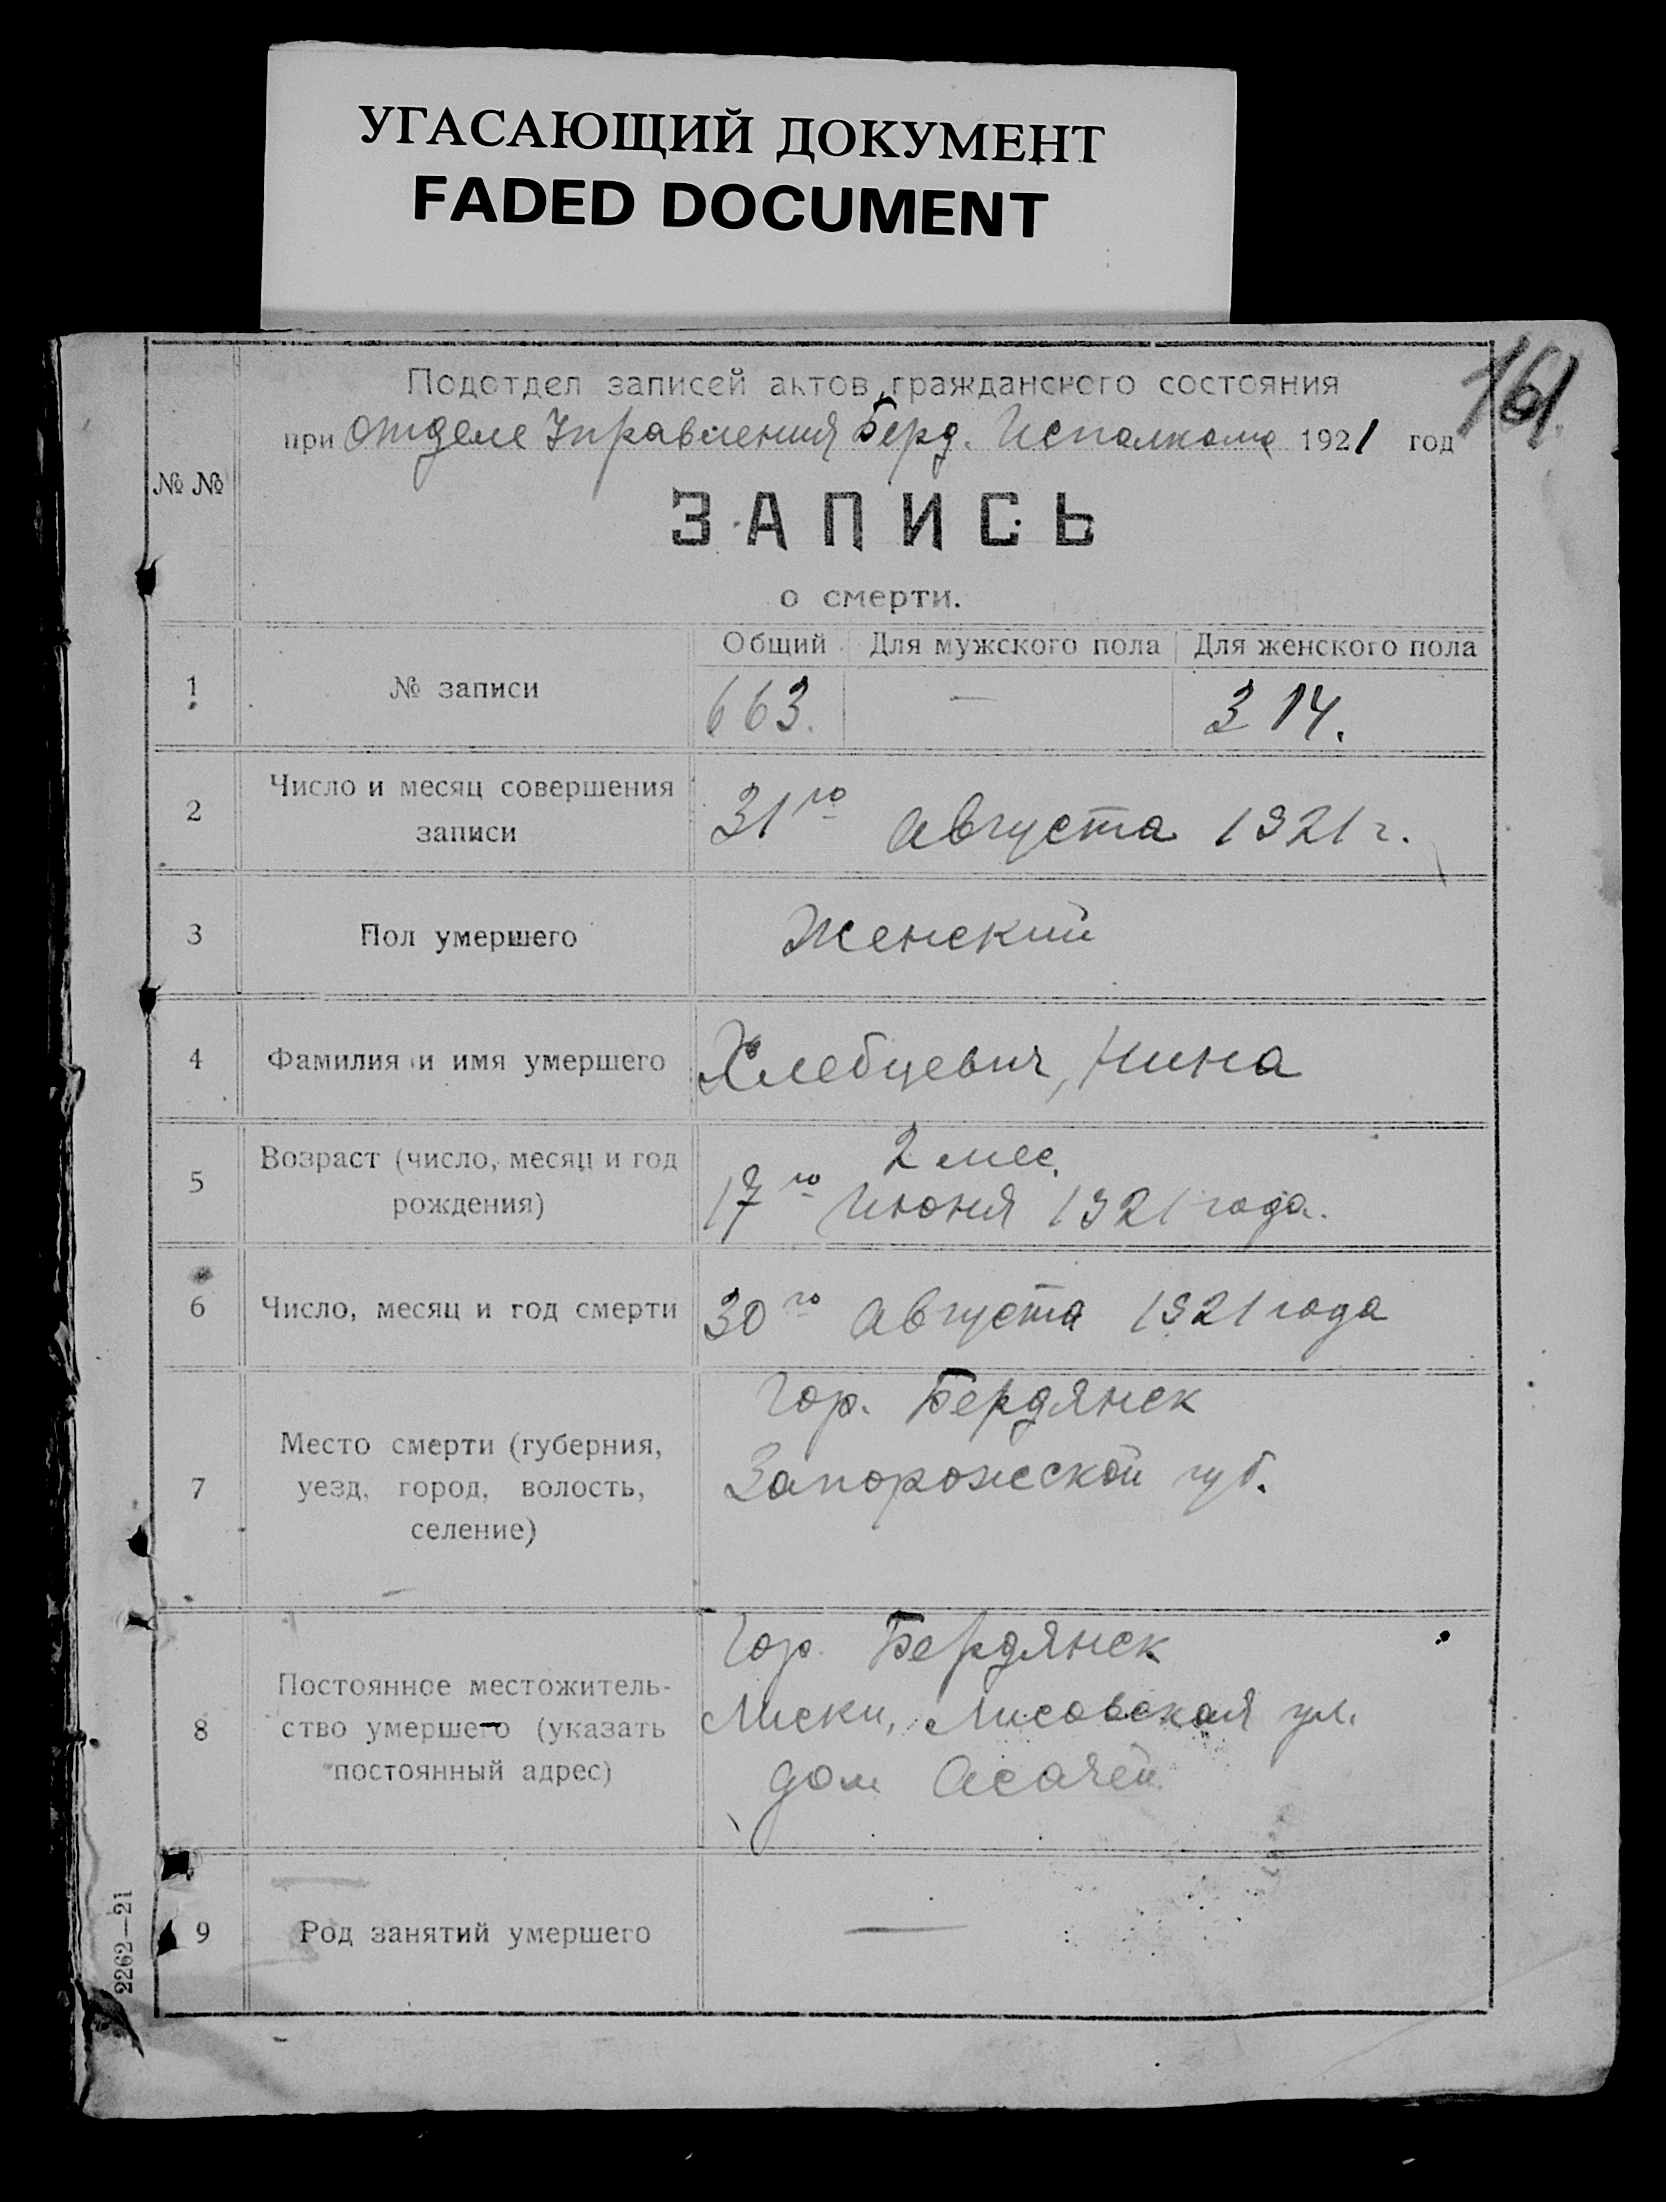 УГАСАЮЩИЙ ДОКУМЕНТ
FADED DOCUMENT
161.
Подотдел записей актов гражданского состояния
при Отделе Управления Берд. Исполкома 1921 год
№ №
ЗАПИСЬ
о смерти.
Общий Для мужского пола Для женского пола
1 № записи 663. — 314.
2 Число и месяц совершения
записи
31го Августа 1921 г.
3 Пол умершего Женский
4 Фамилия и имя умершего Хлебцевич, Нина
5 Возраст (число, месяц и год
рождения)
2 мес.
17го Июня 1921 года.
6 Число, месяц и год смерти 30го Августа 1921 года
7 Место смерти (губерния,
уезд, город, волость,
селение)
Гор. Бердянск
Запорожской губ.
8 Постоянное местожитель-
ство умершего (указать
постоянный адрес)
Гор. Бердянск
Лиски, Лисовская ул.
дом
9 Род занятий умершего —
2262—21